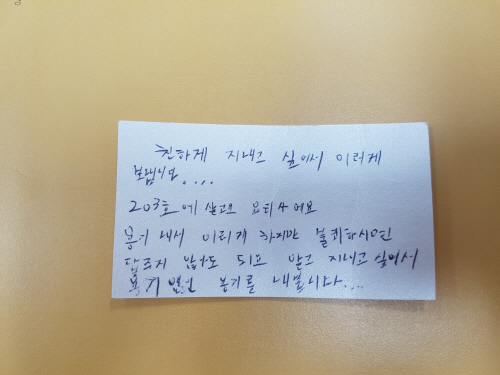 친하게 지내고 싶어서 이러게
보냅니다....
203호에 살고요
용기 내서 이러게 하지만 불쾌하시면
답 주지 않아도 되요 알고 지내고 싶어서
용기 없는 용기를 내봅니다....